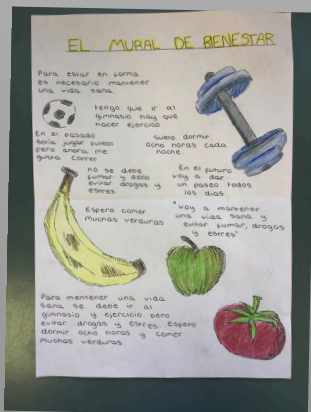 EL MURAL DE BIENESTAR
Para estar en forma
es necesario mantener
una vida sana.
tengo que ir al
gimnasio hay que
hacer ejercico
En el pasado
solia jugar futbol
pero ahora me
gusta correr
Suelo dormir
ocho horas cada
noche.
no se debe
fumar y debo
evitar drogas y
estres
En el futuro
voy a dar
un paseo todos
los dias
Espero comer
muchas verduras
"voy a mantener
una vida sana y
evitar fumar, drogas
y estres"
Para mantener una vida
sana se debe ir al
gimnasio y ejercicio pero
evitar drogas y estres. Espero
dormir ocho horas y comer
muchas verduras.